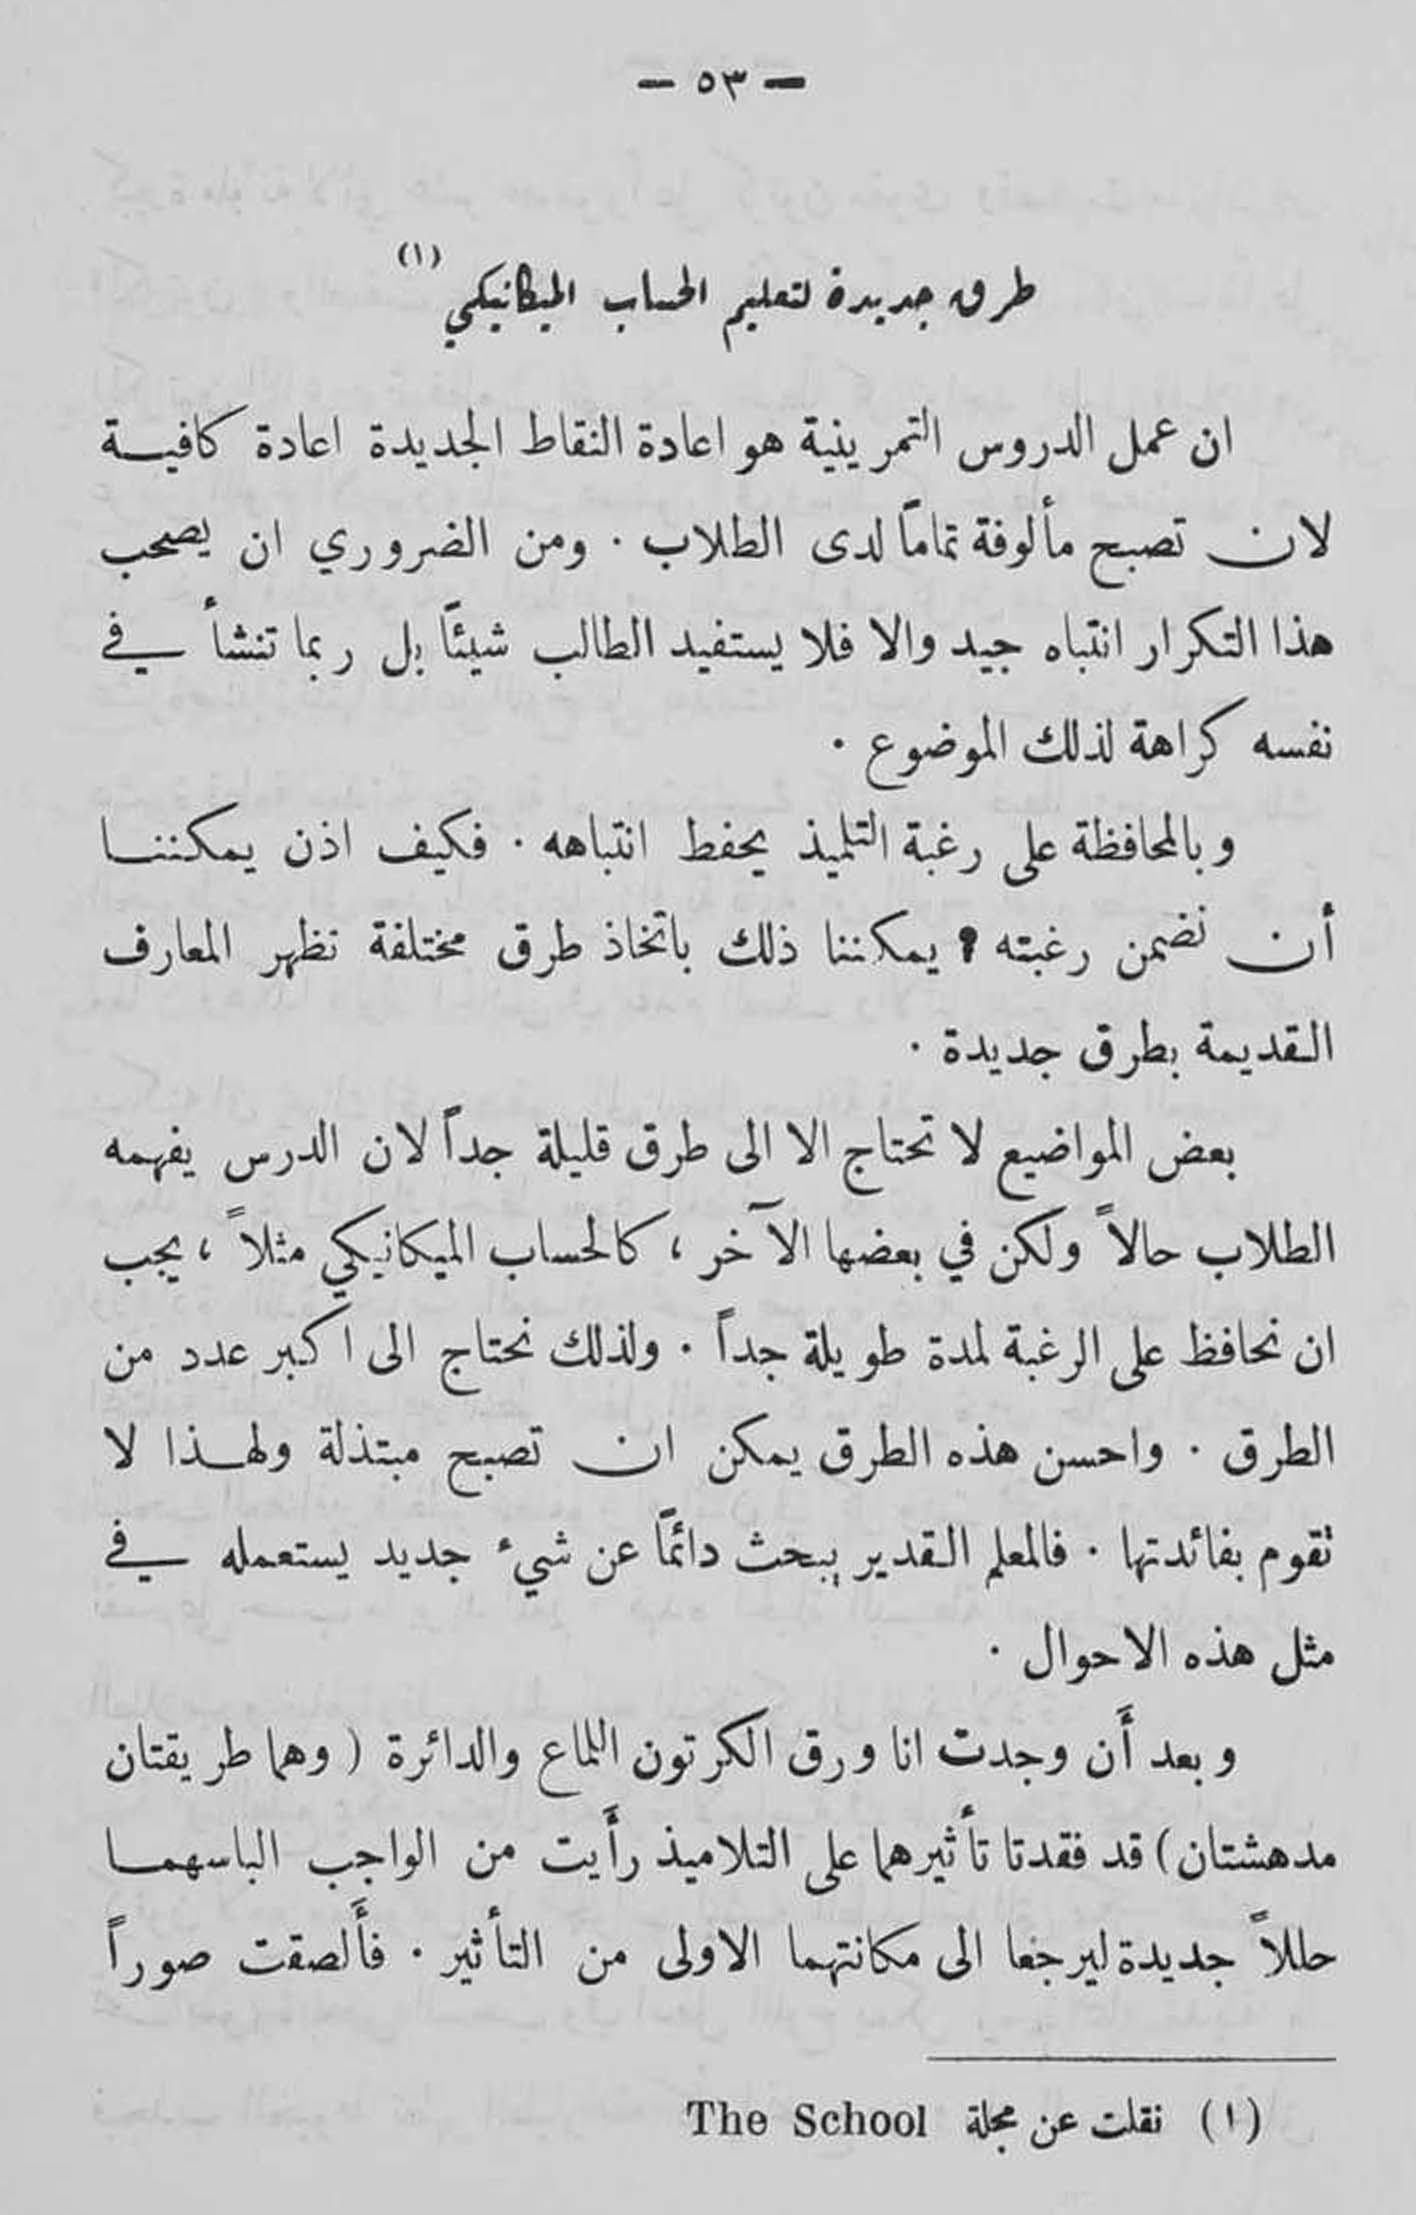 — ٥٣ —
طرق جديدة لتعليم الحساب الميكانيكي (١)
ان عمل الدروس التمرينية هو اعادة النقاط الجديدة اعادة كافيـة
لان تصبح مألوفة تماماً لدى الطلاب . ومن الضروري ان يصحب
هذا التكرار انتباه جيد والا فلا يستفيد الطالب شيئاً بل ربما تنشأ في
نفسه كراهة لذلك الموضوع .
وبالمحافظة على رغبة التلميذ يحفظ انتباهه . فكيف اذن يمكننـا
أن نضمن رغبته ؟ يمكننا ذلك باتخاذ طرق مختلفة تظهر المعارف
القديمة بطرق جديدة .
بعض المواضيع لا تحتاج الا الى طرق قليلة جداً لان الدرس يفهمه
الطلاب حالاً ولكن في بعضها الآخر ، كالحساب الميكانيكي مثلاً ، يجب
ان نحافظ على الرغبة لمدة طويلة جداً . ولذلك نحتاج الى اكبر عدد من
الطرق . واحسن هذه الطرق يمكن ان تصبح مبتذلة ولهـذا لا
تقوم بفائدتها . فالمعلم القدير يبحث دائماً عن شيء جديد يستعمله في
مثل هذه الاحوال .
وبعد أَن وجدت انا ورق الكرتون اللماع والدائرة ( وهما طريقتان
مدهشتان ) قد فقدتا تأثيرهما على التلاميذ رأَيت من الواجب الباسهمـا
حللاً جديدة ليرجعا الى مكانتهما الاولى من التأثير . فأَلصقت صوراً
(١) نقلت عن مجلة The School